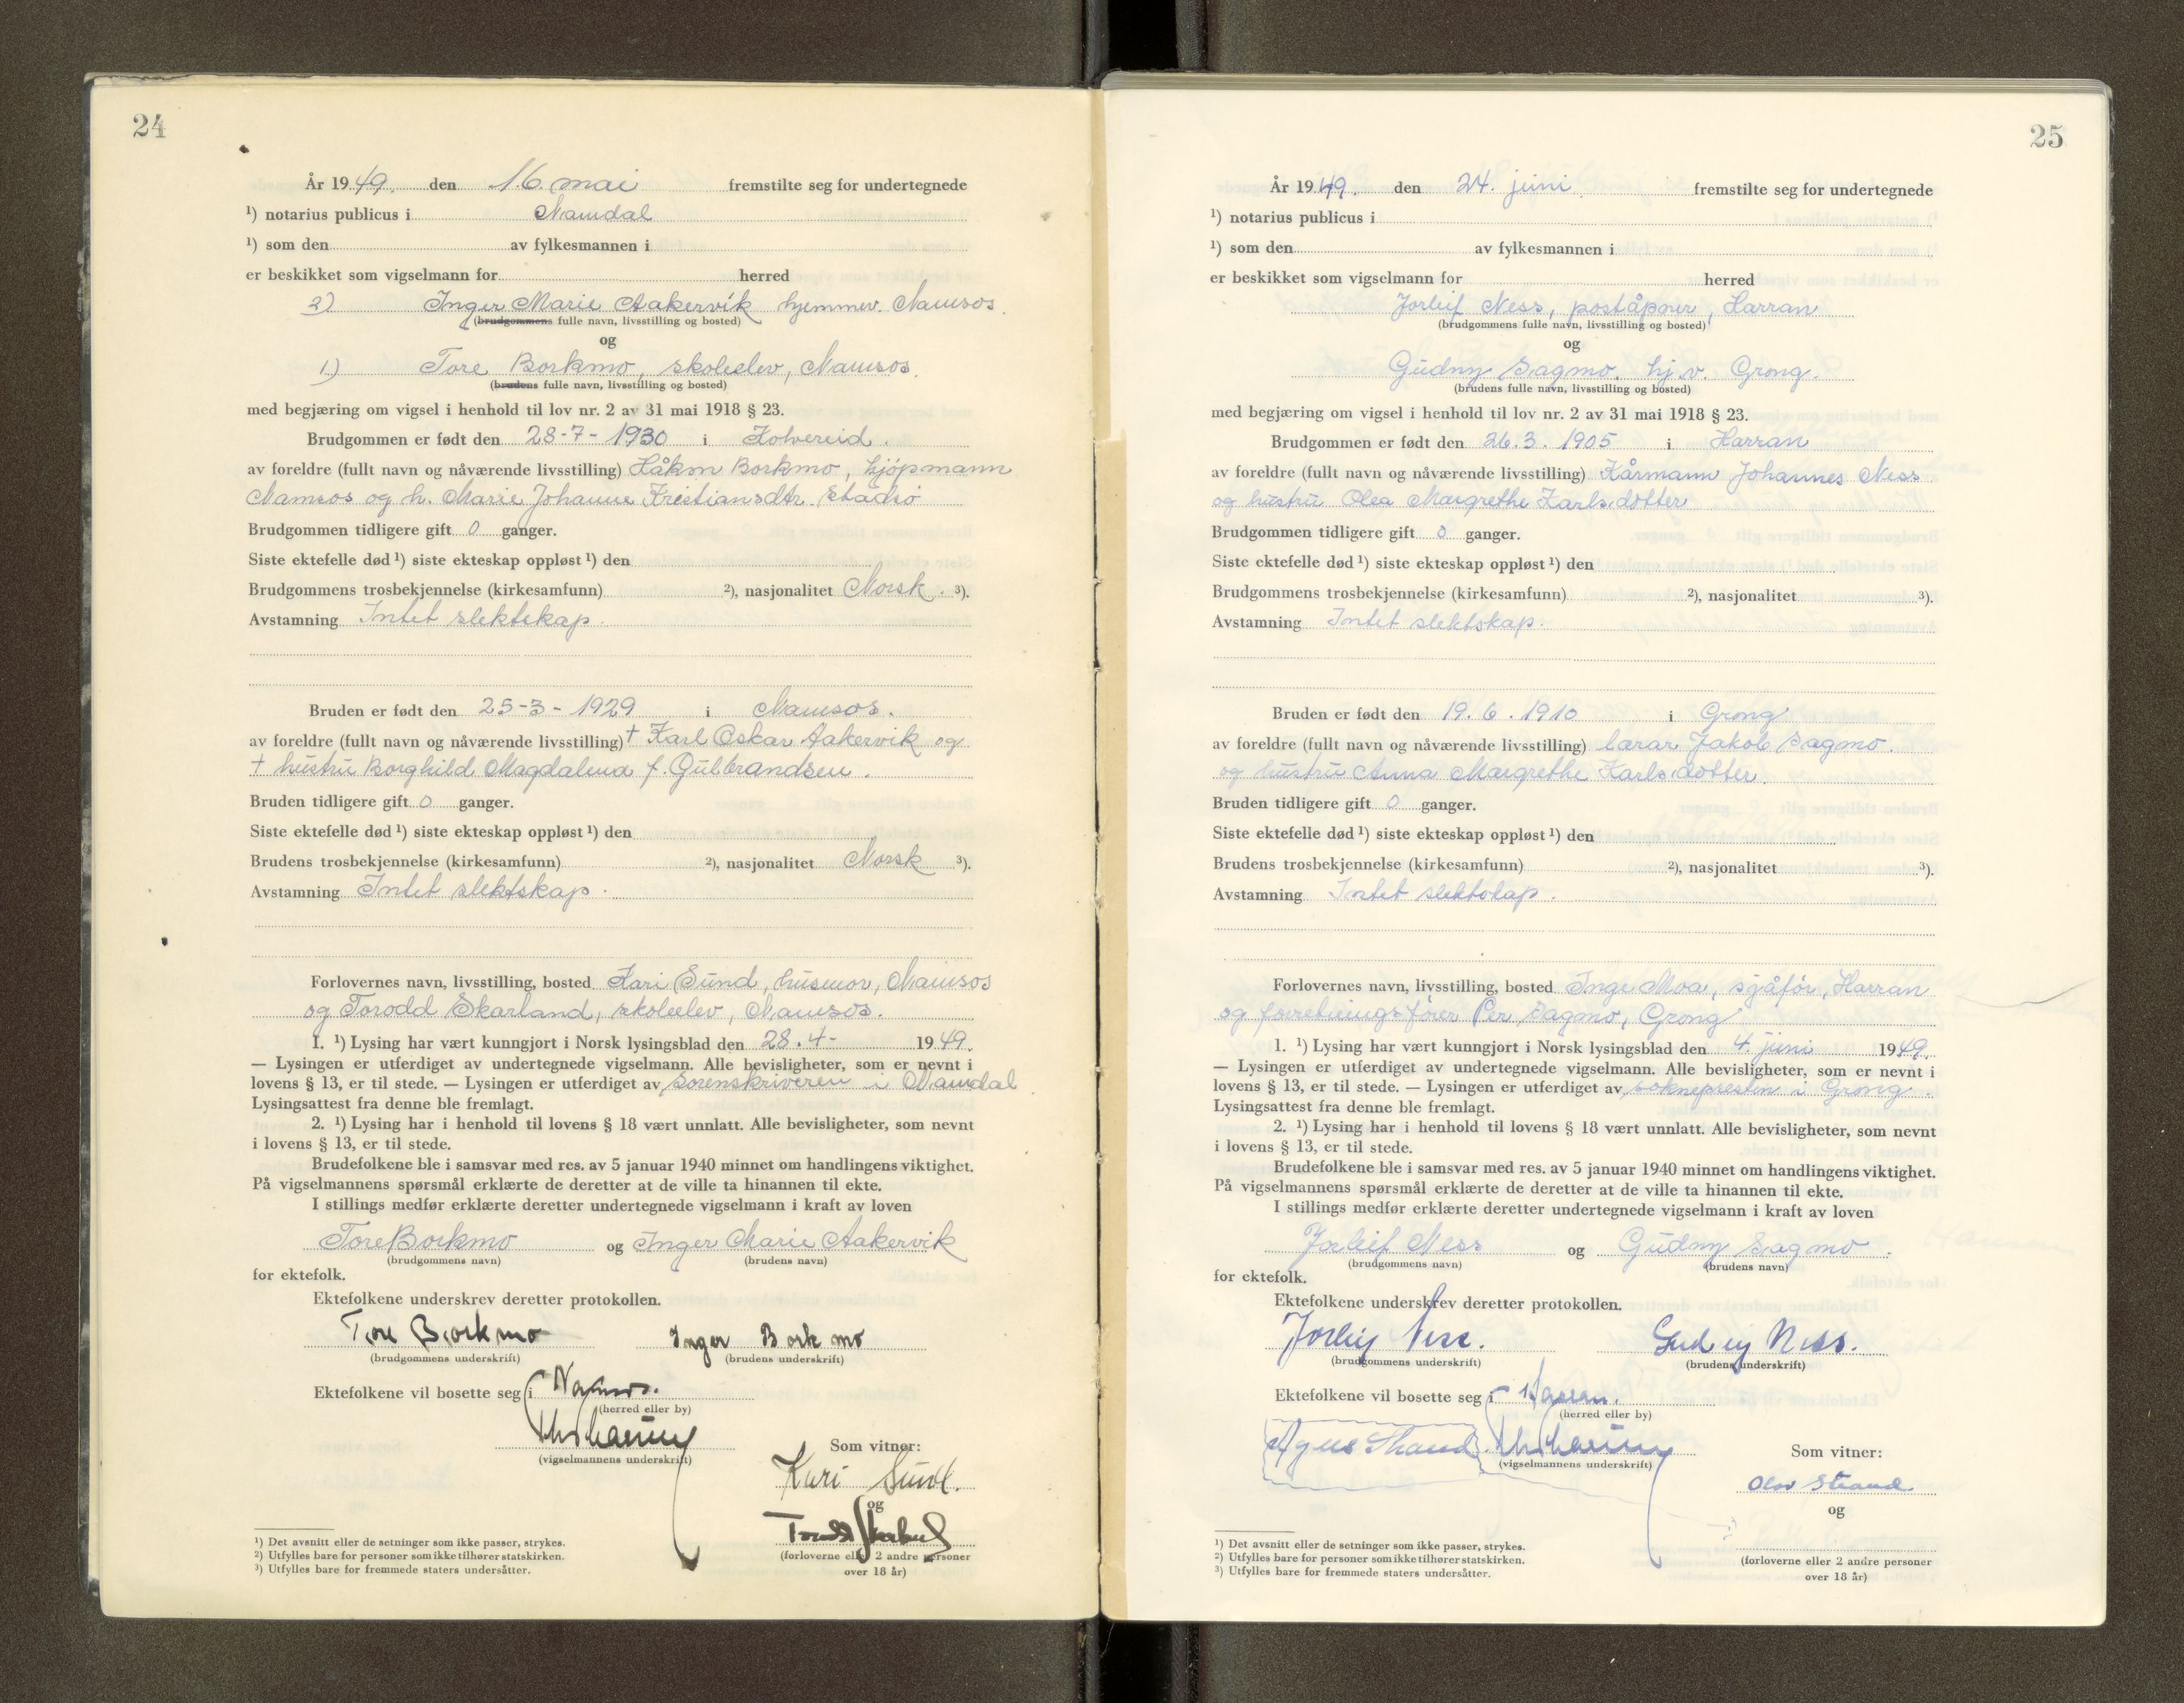 24
År 1949. den 16. mai fremstilte seg for undertegnede
¹) notarius publicus i Namdal
¹) som den av fylkesmannen i
er beskikket som vigselmann for herred
2) Inger Marie Aakervik hjemmev. Namsos.
(brudgommens fulle navn, livsstilling og bosted)
og
1.) Tore Borkmo, skoleelev, Namsos.
(brudens fulle navn, livsstilling og bosted)
med begjæring om vigsel i henhold til lov nr. 2 av 31 mai 1918 § 23.
Brudgommen er født den 28-7-1930 i Kolvereid.
av foreldre (fullt navn og nåværende livsstilling) Håkon Borkmo, kjøpmann
Namsos og h. Marie Johanne Kristiansdtr. Stadsø
Brudgommen tidligere gift 0 ganger.
Siste ektefelle død ¹) siste ekteskap oppløst ¹) den
Brudgommens trosbekjennelse (kirkesamfunn) ²), nasjonalitet Norsk. ³).
Avstamning Intet slektskap.
Bruden er født den 25-3-1929 i Namsos.
av foreldre (fullt navn og nåværende livsstilling) + Karl Oskar Aakervik og
+ hustru Borghild Magdalena f. Gulbrandsen.
Bruden tidligere gift 0 ganger.
Siste ektefelle død ¹) siste ekteskap oppløst ¹) den
Brudens trosbekjennelse (kirkesamfunn) ²), nasjonalitet Norsk ³).
Avstamning Intet slektskap.
Forlovernes navn, livsstilling, bosted Kari Sund, husmor, Namsos
og Torodd Skarland, skoleelev, Namsos.
1. ¹) Lysing har vært kunngjort i Norsk lysingsblad den 28.4- 1949.
— Lysingen er utferdiget av undertegnede vigselmann. Alle bevisligheter, som er nevnt i
lovens § 13, er til stede. — Lysingen er utferdiget av sorenskriveren i Namdal
Lysingsattest fra denne ble fremlagt.
2. ¹) Lysing har i henhold til lovens § 18 vært unnlatt. Alle bevisligheter, som nevnt
i lovens § 13, er til stede.
Brudefolkene ble i samsvar med res. av 5 januar 1940 minnet om handlingens viktighet.
På vigselmannens spørsmål erklærte de deretter at de ville ta hinannen til ekte.
I stillings medfør erklærte deretter undertegnede vigselmann i kraft av loven
Tore Borkmo og Inger Marie Aakervik
(brudgommens navn) (brudens navn)
for ektefolk.
Ektefolkene underskrev deretter protokollen.
Tore Borkmo Inger Borkmo
(brudgommens underskrift) (brudens underskrift)
Ektefolkene vil bosette seg i Namsos.
(herred eller by)
(vigselmannens underskrift)
Som vitner:
Kari Sund.
og
Torodd Skarland
(forloverne eller 2 andre personer
over 18 år)
¹) Det avsnitt eller de setninger som ikke passer, strykes.
²) Utfylles bare for personer som ikke tilhører statskirken.
³) Utfylles bare for fremmede staters undersåtter.
25
År 1949. den 24. juni fremstilte seg for undertegnede
¹) notarius publicus i
¹) som den av fylkesmannen i
er beskikket som vigselmann for herred
Jorleif Ness, poståpner, Harran
(brudgommens fulle navn, livsstilling og bosted)
og
Gudny Sagmo. hj.v. Grong.
(brudens fulle navn, livsstilling og bosted)
med begjæring om vigsel i henhold til lov nr. 2 av 31 mai 1918 § 23.
Brudgommen er født den 26.3. 1905 i Harran
av foreldre (fullt navn og nåværende livsstilling) Kårmann Johannes Ness
og hustru Olea Margrethe Karlsdotter
Brudgommen tidligere gift 0 ganger.
Siste ektefelle død ¹) siste ekteskap oppløst ¹) den
Brudgommens trosbekjennelse (kirkesamfunn) ²), nasjonalitet ³).
Avstamning Intet slektskap.
Bruden er født den 19.6.1910 i Grong
av foreldre (fullt navn og nåværende livsstilling) lærar Jakob Sagmo.
og hustru Anna Margrethe Karlsdotter.
Bruden tidligere gift 0 ganger.
Siste ektefelle død ¹) siste ekteskap oppløst ¹) den
Brudens trosbekjennelse (kirkesamfunn) ²), nasjonalitet ³).
Avstamning Intet slektskap.
Forlovernes navn, livsstilling, bosted Inge Moa, sjåfør, Harran
og forretningsfører Per Sagmo, Grong
1. ¹) Lysing har vært kunngjort i Norsk lysingsblad den 4. juni 1949.
— Lysingen er utferdiget av undertegnede vigselmann. Alle bevisligheter, som er nevnt i
lovens § 13, er til stede. — Lysingen er utferdiget av soknepresten i Grong.
Lysingsattest fra denne ble fremlagt.
2. ¹) Lysing har i henhold til lovens § 18 vært unnlatt. Alle bevisligheter, som nevnt
i lovens § 13, er til stede.
Brudefolkene ble i samsvar med res. av 5 januar 1940 minnet om handlingens viktighet.
På vigselmannens spørsmål erklærte de deretter at de ville ta hinannen til ekte.
I stillings medfør erklærte deretter undertegnede vigselmann i kraft av loven
Jorleif Ness og Gudny Sagmo.
(brudgommens navn) (brudens navn)
for ektefolk.
Ektefolkene underskrev deretter protokollen.
Jorleif Ness. Gudny Ness.
(brudgommens underskrift) (brudens underskrift)
Ektefolkene vil bosette seg i Harran.
(herred eller by)
Strand
(vigselmannens underskrift)
Som vitner:
Olav Strand
og
(forloverne eller 2 andre personer
over 18 år)
¹) Det avsnitt eller de setninger som ikke passer, strykes.
²) Utfylles bare for personer som ikke tilhører statskirken.
³) Utfylles bare for fremmede staters undersåtter.